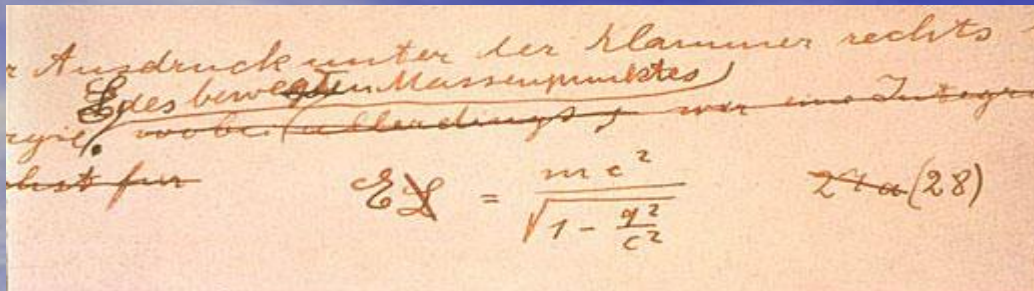 r Ausdruck unter der Klammer rechts
E des bewegten Massenpunktes
rgie, wobei (allerdings, wir eine Integr
chst für
E L = mc² / √(1 - q²/c²) 24a (28)